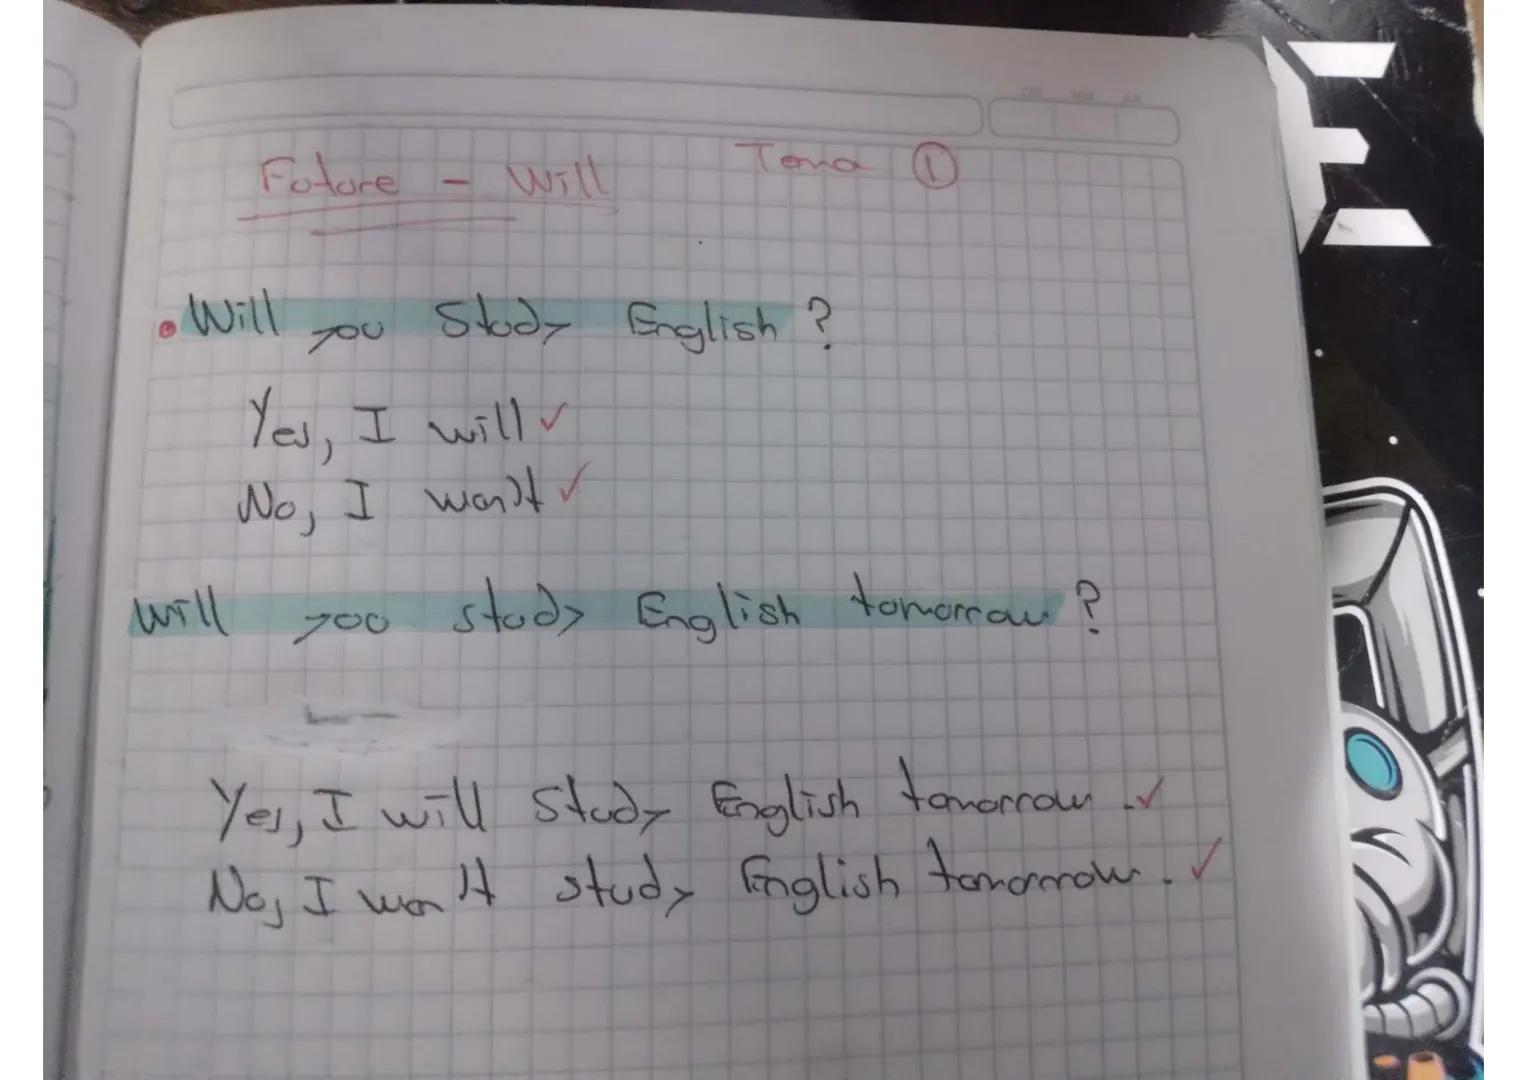 Future - Will Tema ①
• Will you Study English ?
Yes, I will ✓
No, I won't ✓
Will you study English tomorrow ?
Yes, I will Study English tomorrow . ✓
No, I won't study English tomorrow . ✓